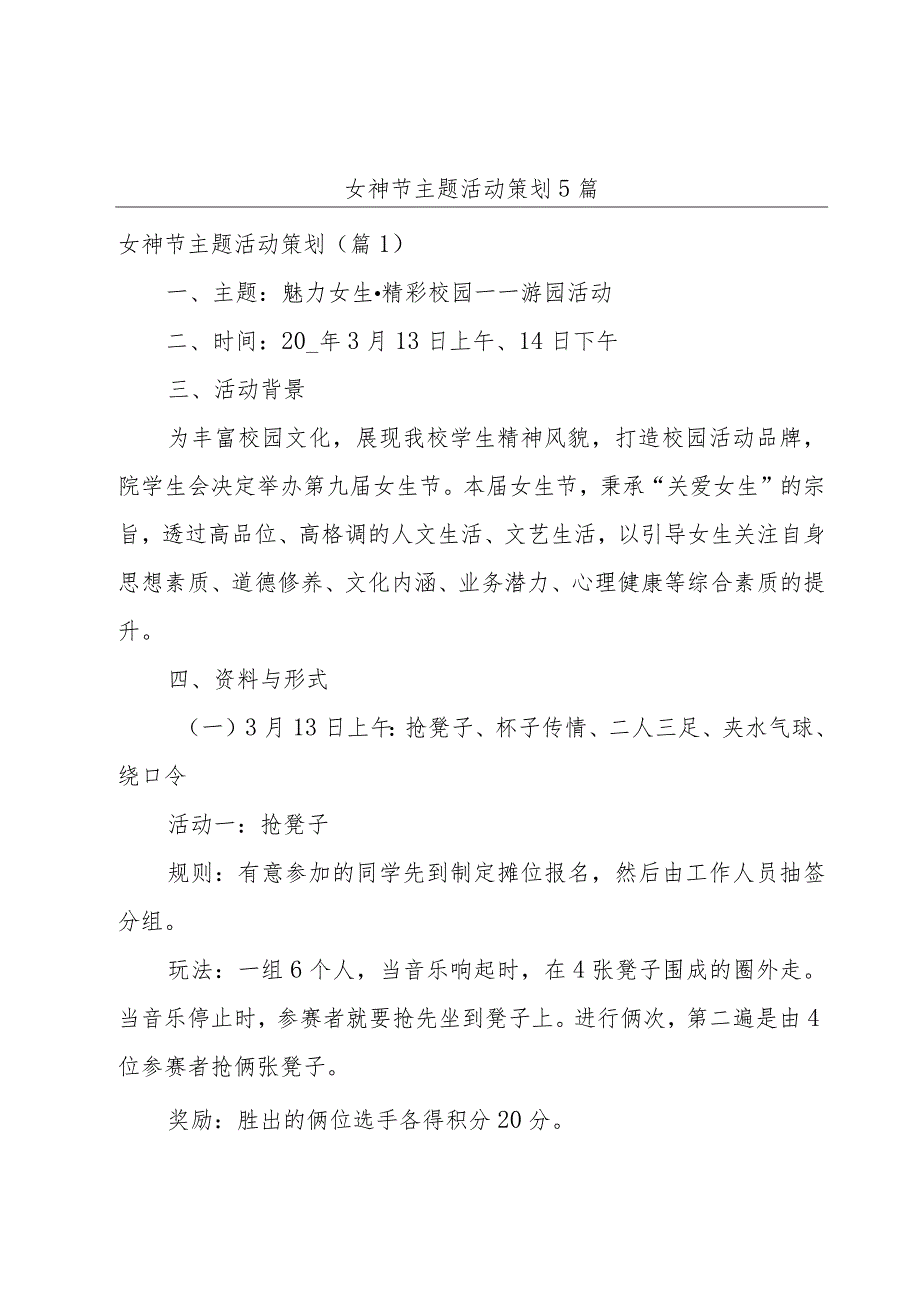 女神节主题活动策划5篇
女神节主题活动策划（篇1）
一、主题：魅力女生•精彩校园一一游园活动
二、时间：20_年3月13日上午、14日下午
三、活动背景
为丰富校园文化，展现我校学生精神风貌，打造校园活动品牌，
院学生会决定举办第九届女生节。本届女生节，秉承“关爱女生”的宗
旨，透过高品位、高格调的人文生活、文艺生活，以引导女生关注自身
思想素质、道德修养、文化内涵、业务潜力、心理健康等综合素质的提
升。
四、资料与形式
（一）3月13日上午：抢凳子、杯子传情、二人三足、夹水气球、
绕口令
活动一：抢凳子
规则：有意参加的同学先到制定摊位报名，然后由工作人员抽签
分组。
玩法：一组6个人，当音乐响起时，在4张凳子围成的圈外走。
当音乐停止时，参赛者就要抢先坐到凳子上。进行俩次，第二遍是由4
位参赛者抢俩张凳子。
奖励：胜出的俩位选手各得积分20分。